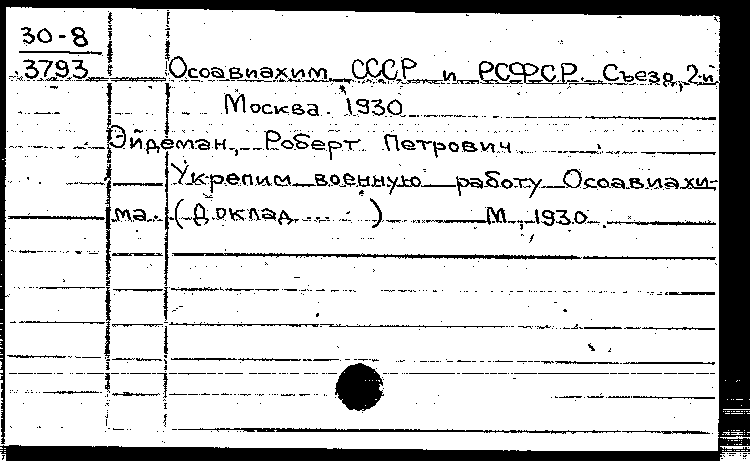 30-8
3793
Осоавиахим СССР и РСФСР. Съезд, 2-й
Москва. 1930
Эйдеман, Роберт Петрович
Укрепим военную работу Осоавиахи-
ма. (Доклад ... ) М, 1930.